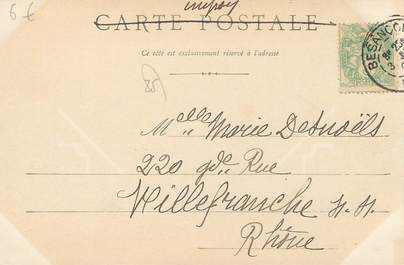 6 €
CARTE POSTALE
Ce côté est exclusivement réservé à l'adresse
BESANÇON
Melle Marie Desnoëls
220 gde Rue
Villefranche
Rhône